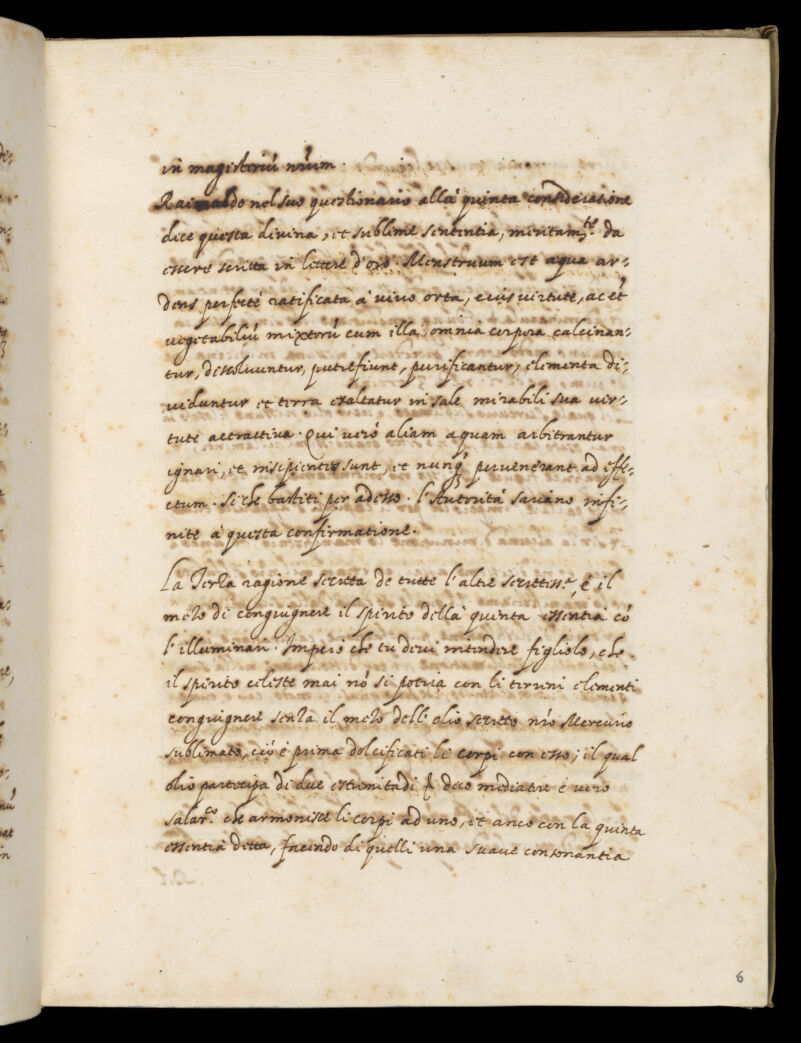 in magisteriũ nrum.
Raimaldo nel suo questionario alla quinta consideratione
dice questa divina, et sublime sententia, meritam.te da
essere scritta in lettere d'oro. Menstruum est aqua ar-
dens perfecte ratificata à vino orta, cuius virtute, ac et
vegetabiliũ mixtorũ cum illa, omnia corpora calcinan-
tur, dissoluuntur, putrefiunt, purificantur, elementa di-
viduntur et terra exaltatur in sale mirabili sua vir-
tute attractiva. Qui verò aliam aquam arbitrantur
ignari, et insipientes sunt, et nunq3 pervenerant ad effe-
ctum. Siche bastiti per adesso. l'Autorità sarano infi-
nite à questa confirmatione.
La Terza ragione secreta de tutte l'altre secretiss.e, é il
mezo di congiugnere il spirito della quinta essentia cõ
l'illuminari. Imperò che tu devi intendere figliolo, che
il spirito celeste mai nõ si potria con li terreni elementi
congiugnere senza il mezo dell'olio secreto nro Mercurio
sublimato, ciò é prima dolcificati li corpi con esso; il qual
olio partecipa di due estrimitadi deco mediatre e vero
che armonisce li corpi ad uno, et anco con la quinta
essentia detta, facendo di quelli una suave consonantia
6